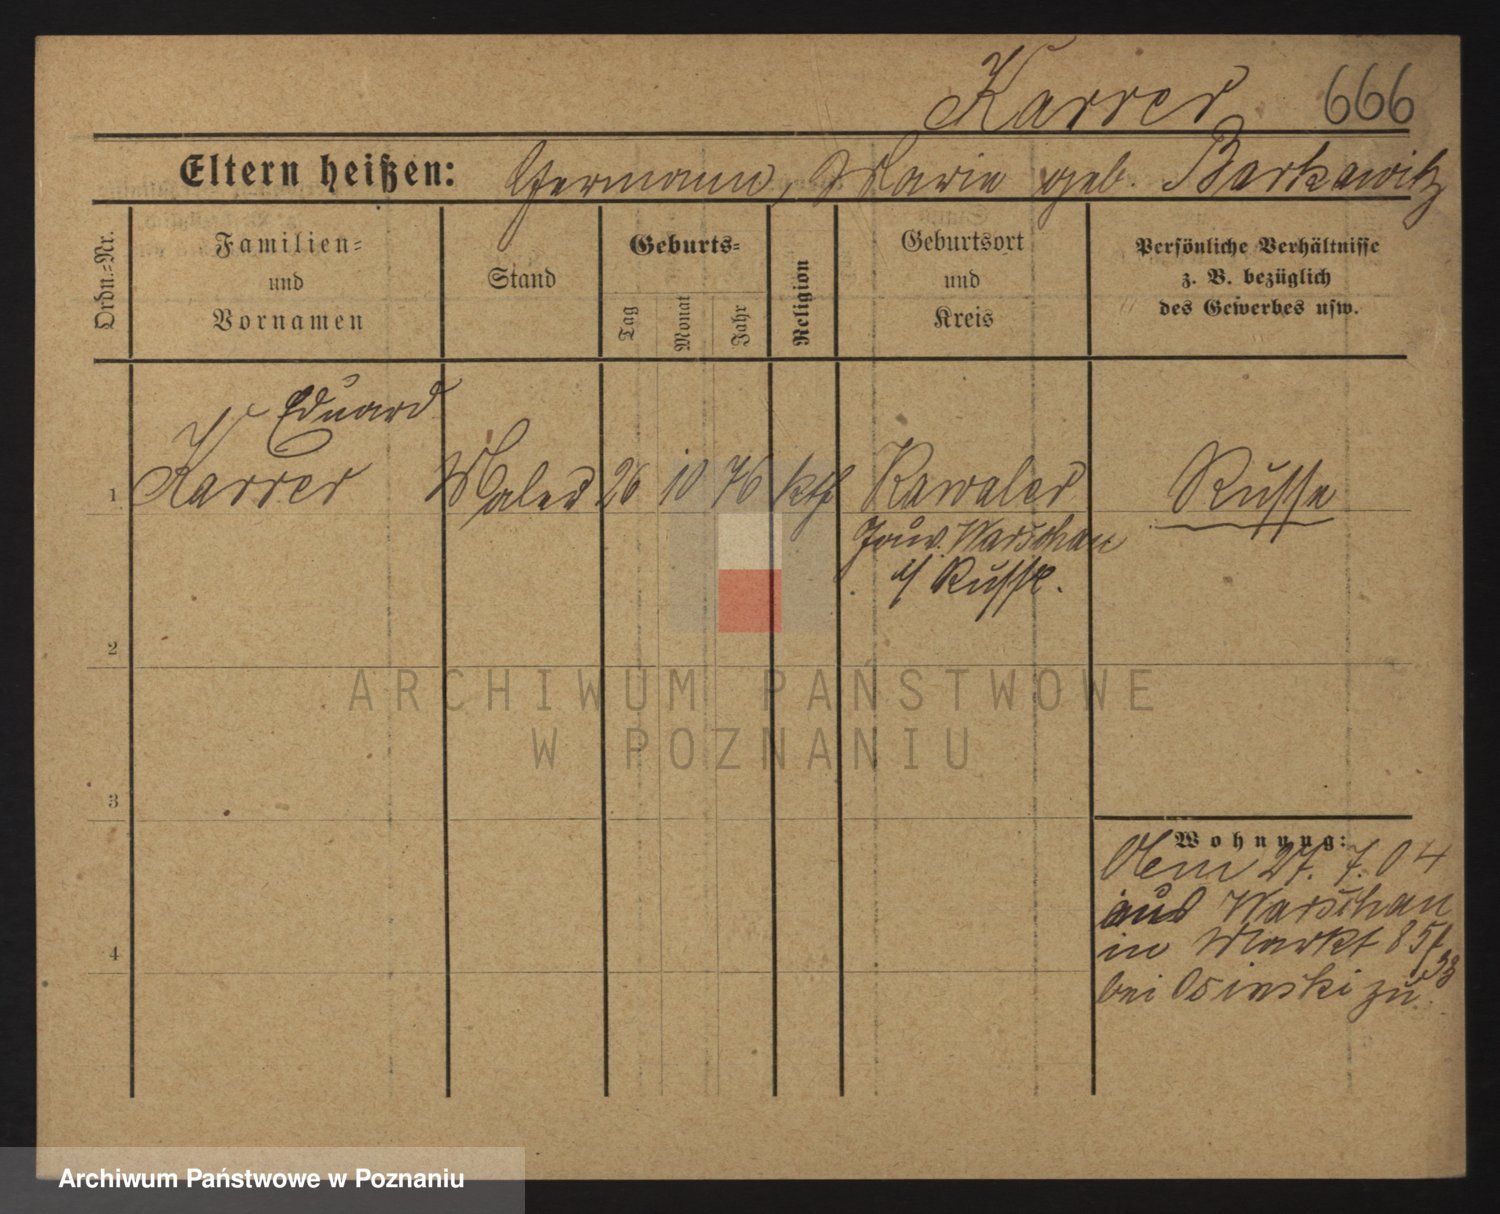 Karrer 666
Eltern heißen: Hermann, Marie geb. Barkawitz
Ordn.=Nr.
Familien=
und
Vornamen
Stand
Geburts=
Tag
Monat
Jahr
Religion
Geburtsort
und
Kreis
Persönliche Verhältnisse
z. B. bezüglich
des Gewerbes usw.
Eduard
1 Karrer Maler 26 10 76 kth Kawaler Russe
Gouv. Warschau
i/ Russl.
2
ARCHIWUM PAŃSTWOWE
W POZNANIU
3
Wohnung:
27. 7. 04
aus Warschau
in Markt 85/
33
4
bei Osinski zu.
Archiwum Państwowe w Poznaniu